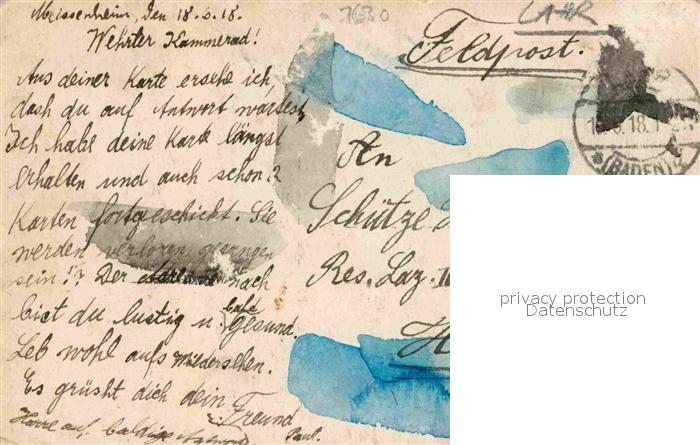 Meissenheim, Den 18.6.18.
Wehrter Kammerad!
Aus deiner Karte ersehe ich,
dash du auf Antwort wartest,
Ich habe deine Karte längst
erhalten und auch schon 2
Karten fortgeschickt. Sie
werden verloren gegangen
sein!? Der nach
bist du lustig u. bald Gesund.
Leb wohl aufs wiedersehen.
Es grüsht dich dein
Freund
Harre auf baldige Antwort
Paul.
7630
LAHR
Feldpost.
(BADEN)
An
Schütze
Res. Laz.
privacy protection
Datenschutz